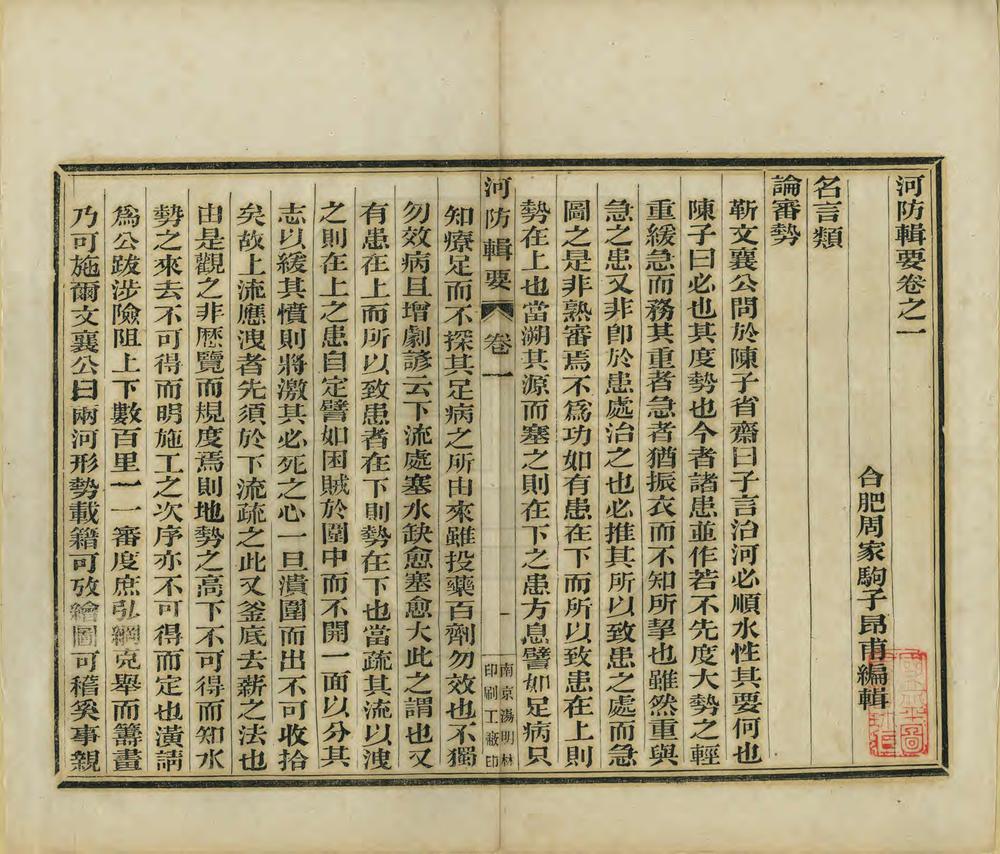 河防輯要卷之一
合肥周家駒子昂甫編輯
名言類
論審勢
靳文襄公問於陳子省齋曰子言治河必順水性其要何也
陳子曰必也其度勢也今者諸患並作若不先度大勢之輕
重緩急而務其重者急者猶振衣而不知所挈也雖然重與
急之患又非卽於患處治之也必推其所以致患之處而急
圖之是非熟審焉不爲功如有患在下而所以致患在上則
勢在上也當溯其源而塞之則在下之患方息譬如足病只
河防輯要
卷一
一
南京湯明林
印刷工廠印
知療足而不探其足病之所由來雖投藥百劑勿效也不獨
勿效病且增劇諺云下流處塞水缺愈塞愈大此之謂也又
有患在上而所以致患者在下則勢在下也當疏其流以洩
之則在上之患自定譬如困賊於圍中而不開一面以分其
志以緩其憤則將激其必死之心一旦潰圍而出不可收拾
矣故上流應洩者先須於下流疏之此又釜底去薪之法也
由是觀之非歷覽而規度焉則地勢之高下不可得而知水
勢之來去不可得而明施工之次序亦不可得而定也潢請
爲公跋涉險阻上下數百里一一審度庶弘綱克舉而籌畫
乃可施爾文襄公曰兩河形勢載籍可攷繪圖可稽奚事親